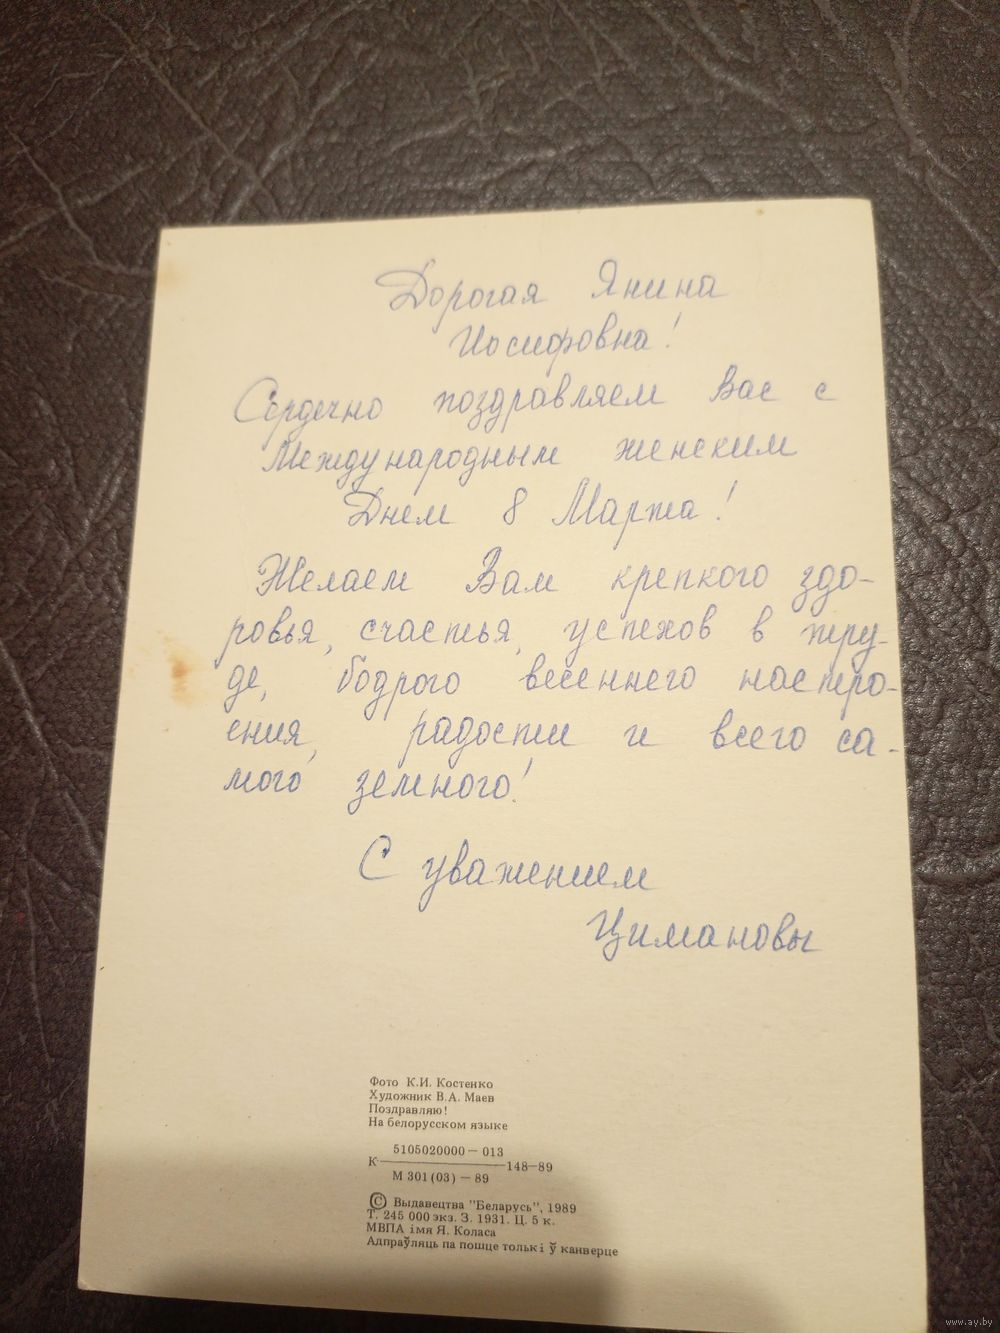 Дорогая Янина
Иосифовна!
Сердечно поздравляем Вас с
Международным женским
Днем 8 Марта!
Желаем Вам крепкого здо-
ровья, счастья, успехов в тру-
де, бодрого весеннего настро-
ения, радости и всего са-
мого земного!
С уважением
Цимановы
Фото К.И. Костенко
Художник В.А. Маев
Поздравляю!
На белорусском языке
5105020000 — 013
К———148—89
М 301 (03) — 89
© Выдавецтва "Беларусь", 1989
Т. 245 000 экз. З. 1931. Ц. 5 к.
МВПА імя Я. Коласа
Адпраўляць па пошце толькі ў канверце
www.ay.by